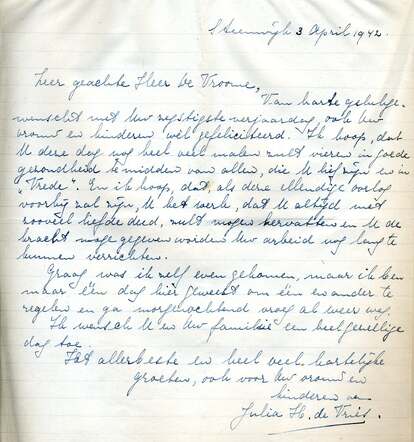 Steenwijk 3 April 1942.
Zeer geachte Heer de Vroome,
Van harte gelukge-
wenscht met Uw zestigste verjaardag, ook Uw
vrouw en kinderen wel gefeliciteerd. Ik hoop, dat
U deze dag nog heel veel malen zult vieren in goede
gezondheid te midden van allen, die U lief zijn en in
"Vrede". En ik hoop, dat, als deze ellendige oorlog
voorbij zal zijn, U het werk, dat U altijd met
zooveel liefde deed, zult mogen hervatten en U de
kracht moge gegeven worden Uw arbeid nog lang te
kunnen verrichten.
Graag was ik zelf even gekomen, maar ik ben
maar één dag hier geweest om één en ander te
regelen en ga morgenochtend vroeg al weer weg.
Ik wensch U en Uw familie een heel gezellige
dag toe.
Het allerbeste en heel veel hartelijke
groeten, ook voor Uw vrouw en
kinderen van
Julia H. de Vries.